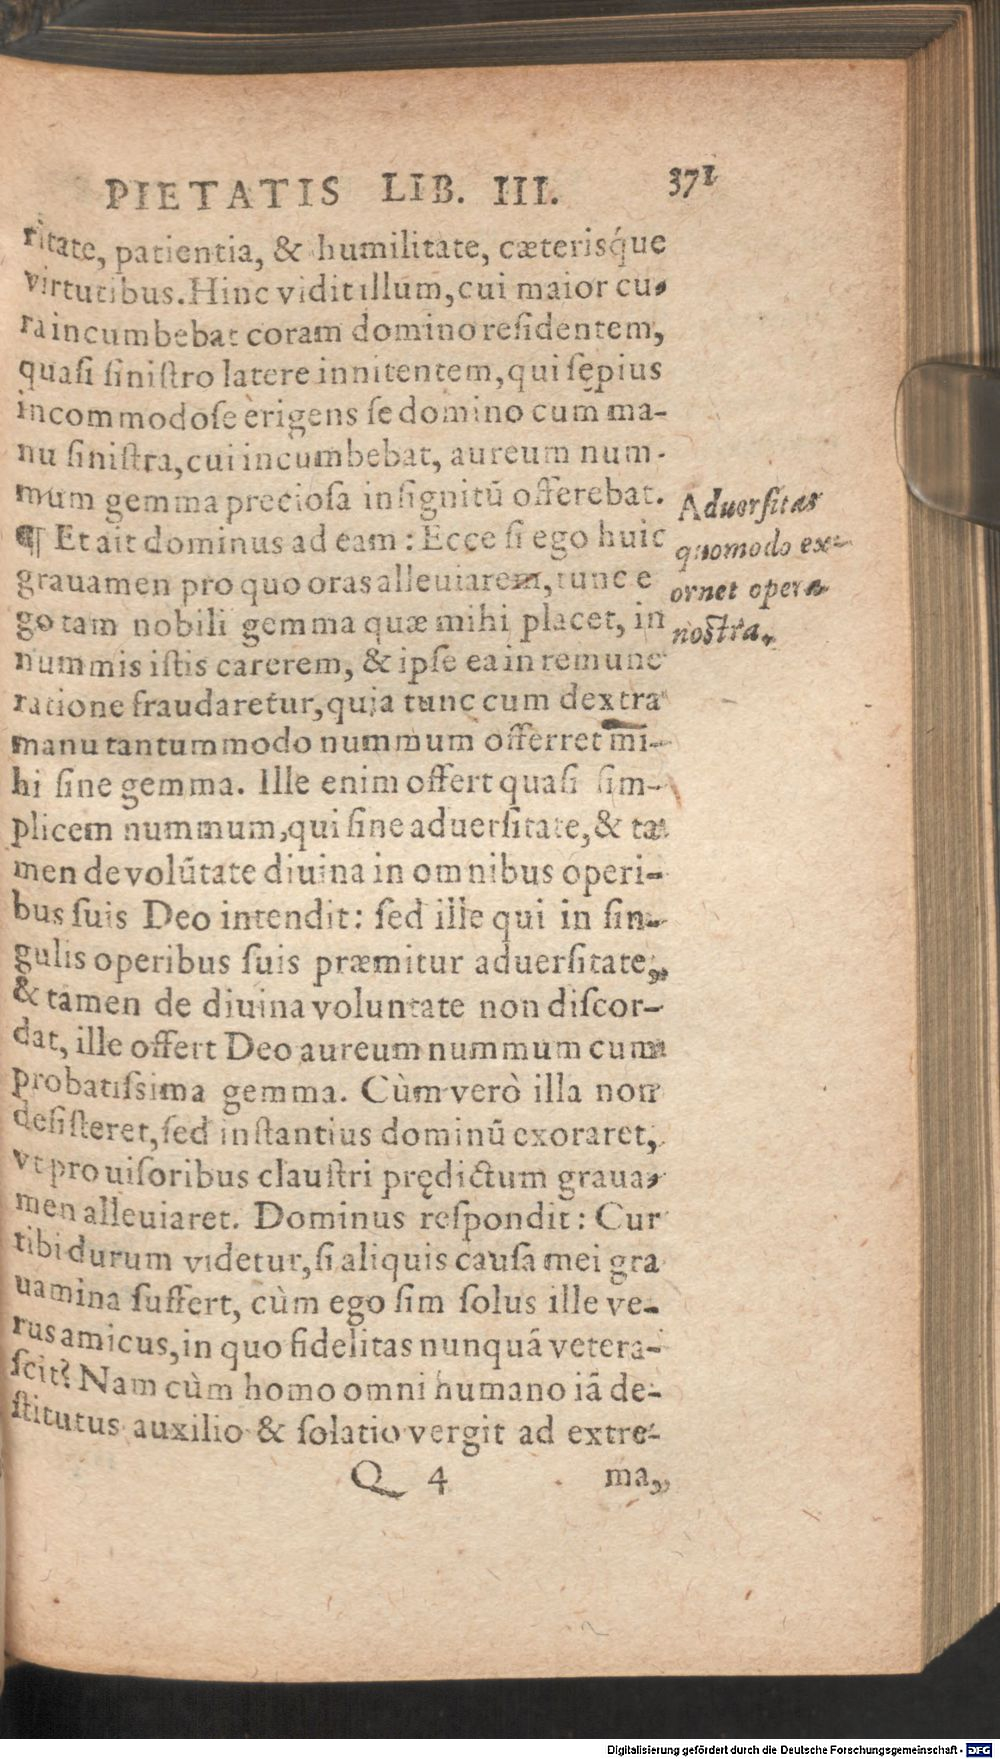 PIETATIS LIB. III. 371
ritate, patientia, & humilitate, cæterisq́ue
virtutibus. Hinc vidit illum, cui maior cu-
ra incumbebat coram domino residentem,
quasi sinistro latere innitentem, qui sępius
incommodose erigens se domino cum ma-
nu sinistra, cui incumbebat, aureum num-
mum gemma preciosa insignitū offerebat.
¶ Et ait dominus ad eam: Ecce si ego huic
grauamen pro quo oras alleuiarem, tunc e
go tam nobili gemma quæ mihi placet, in
nummis istis carerem, & ipse ea in remune
ratione fraudaretur, quia tunc cum dextra
manu tantummodo nummum offerret mi-
hi sine gemma. Ille enim offert quasi sim-
plicem nummum, qui sine aduersitate, & ta
men de volūtate diuina in omnibus operi-
bus suis Deo intendit: sed ille qui in sin-
gulis operibus suis præmitur aduersitate,
& tamen de diuina voluntate non discor-
dat, ille offert Deo aureum nummum cum
probatissima gemma. Cùm verò illa non
desisteret, sed instantius dominū exoraret,
vt prouisoribus claustri prędictum graua-
men alleuiaret. Dominus respondit: Cur
tibi durum videtur, si aliquis causa mei gra
uamina suffert, cùm ego sim solus ille ve-
rus amicus, in quo fidelitas nunquā vetera-
scit? Nam cùm homo omni humano iā de-
stitutus auxilio & solatio vergit ad extre-
Q 4 ma,
Aduersitas
quomodo ex-
ornet opera
nostra.
Digitalisierung gefördert durch die Deutsche Forschungsgemeinschaft - DFG